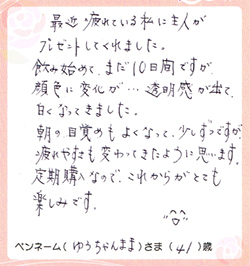 最近疲れている私に主人が
プレゼントしてくれました。
飲み始めて、まだ10日間ですが
顔色に変化が…透明感が出て、
白くなってきました。
朝の目覚めもよくなって、少しずつですが
疲れやすさも変わってきたように思います。
定期購入なので、これからがとても
楽しみです。
ペンネーム(ゆうちゃんまま)さま(41)歳